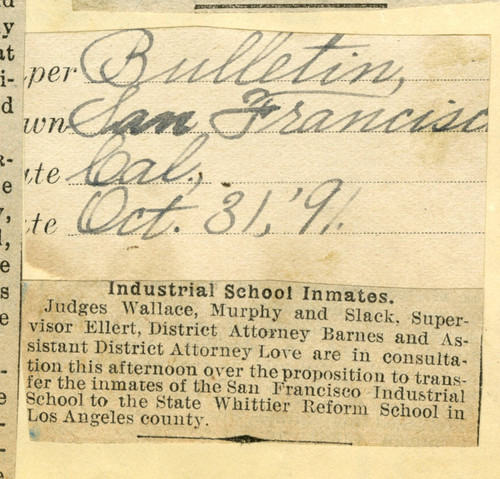 per Bulletin,
wn San Francisco
te Cal.,
te Oct. 31, '91.
Industrial School Inmates.
Judges Wallace, Murphy and Slack, Super-
visor Ellert, District Attorney Barnes and As-
sistant District Attorney Love are in consulta-
tion this afternoon over the proposition to trans-
fer the inmates of the San Francisco Industrial
School to the State Whittier Reform School in
Los Angeles county.